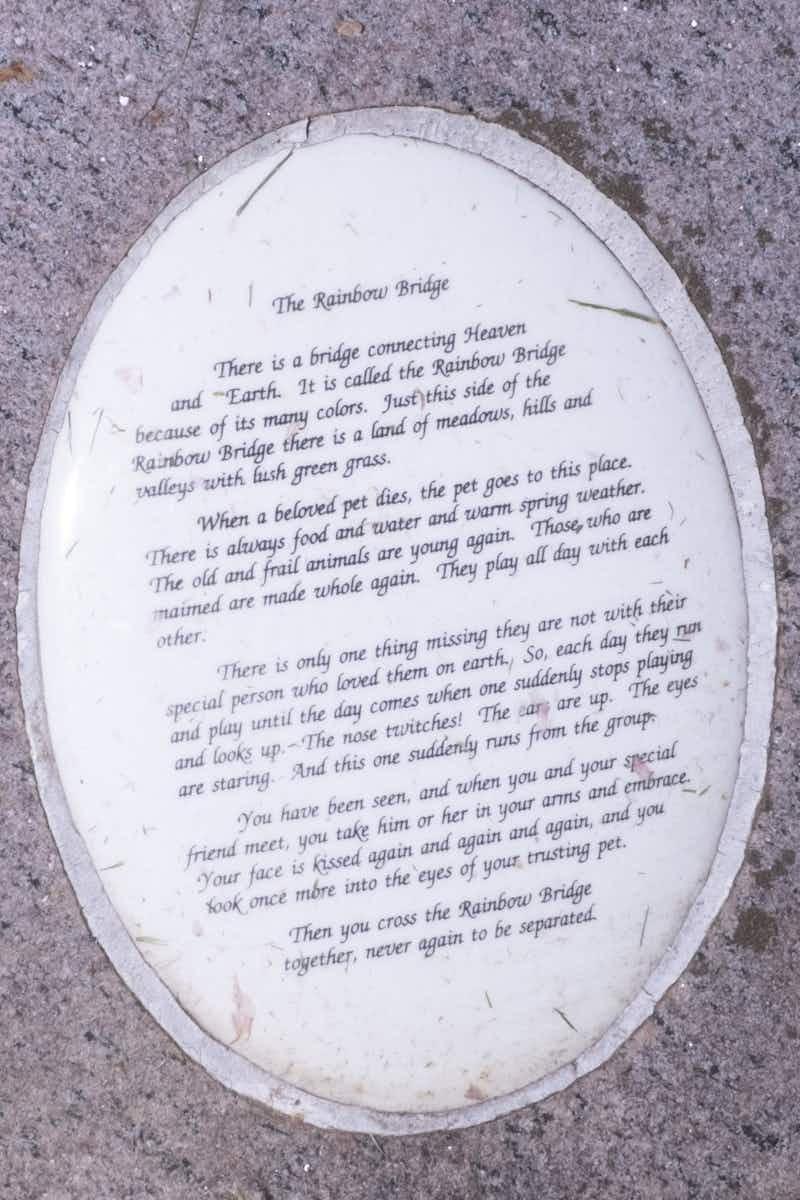 The Rainbow Bridge
There is a bridge connecting Heaven
and Earth. It is called the Rainbow Bridge
because of its many colors. Just this side of the
Rainbow Bridge there is a land of meadows, hills and
valleys with lush green grass.
When a beloved pet dies, the pet goes to this place.
There is always food and water and warm spring weather.
The old and frail animals are young again. Those who are
maimed are made whole again. They play all day with each
other.
There is only one thing missing they are not with their
special person who loved them on earth. So, each day they run
and play until the day comes when one suddenly stops playing
and looks up. The nose twitches! The ears are up. The eyes
are staring. And this one suddenly runs from the group.
You have been seen, and when you and your special
friend meet, you take him or her in your arms and embrace.
Your face is kissed again and again and again, and you
look once more into the eyes of your trusting pet.
Then you cross the Rainbow Bridge
together, never again to be separated.